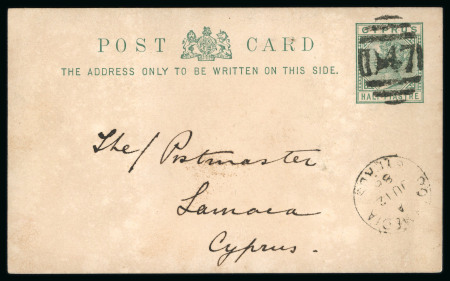 POST CARD
THE ADDRESS ONLY TO BE WRITTEN ON THIS SIDE.
CYPRUS
HALF PIASTRE
The Postmaster
Larnaca
Cyprus.